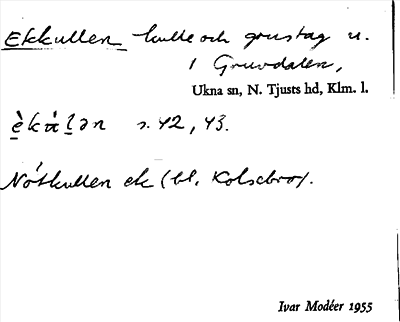 Ekkullen kulle och grustag n.
i Gruvdalen,
Ukna sn, N. Tjusts hd, Klm. l.
s. 42, 43.
Nötkullen ek (bl. Kolsebro).
Ivar Modéer 1955